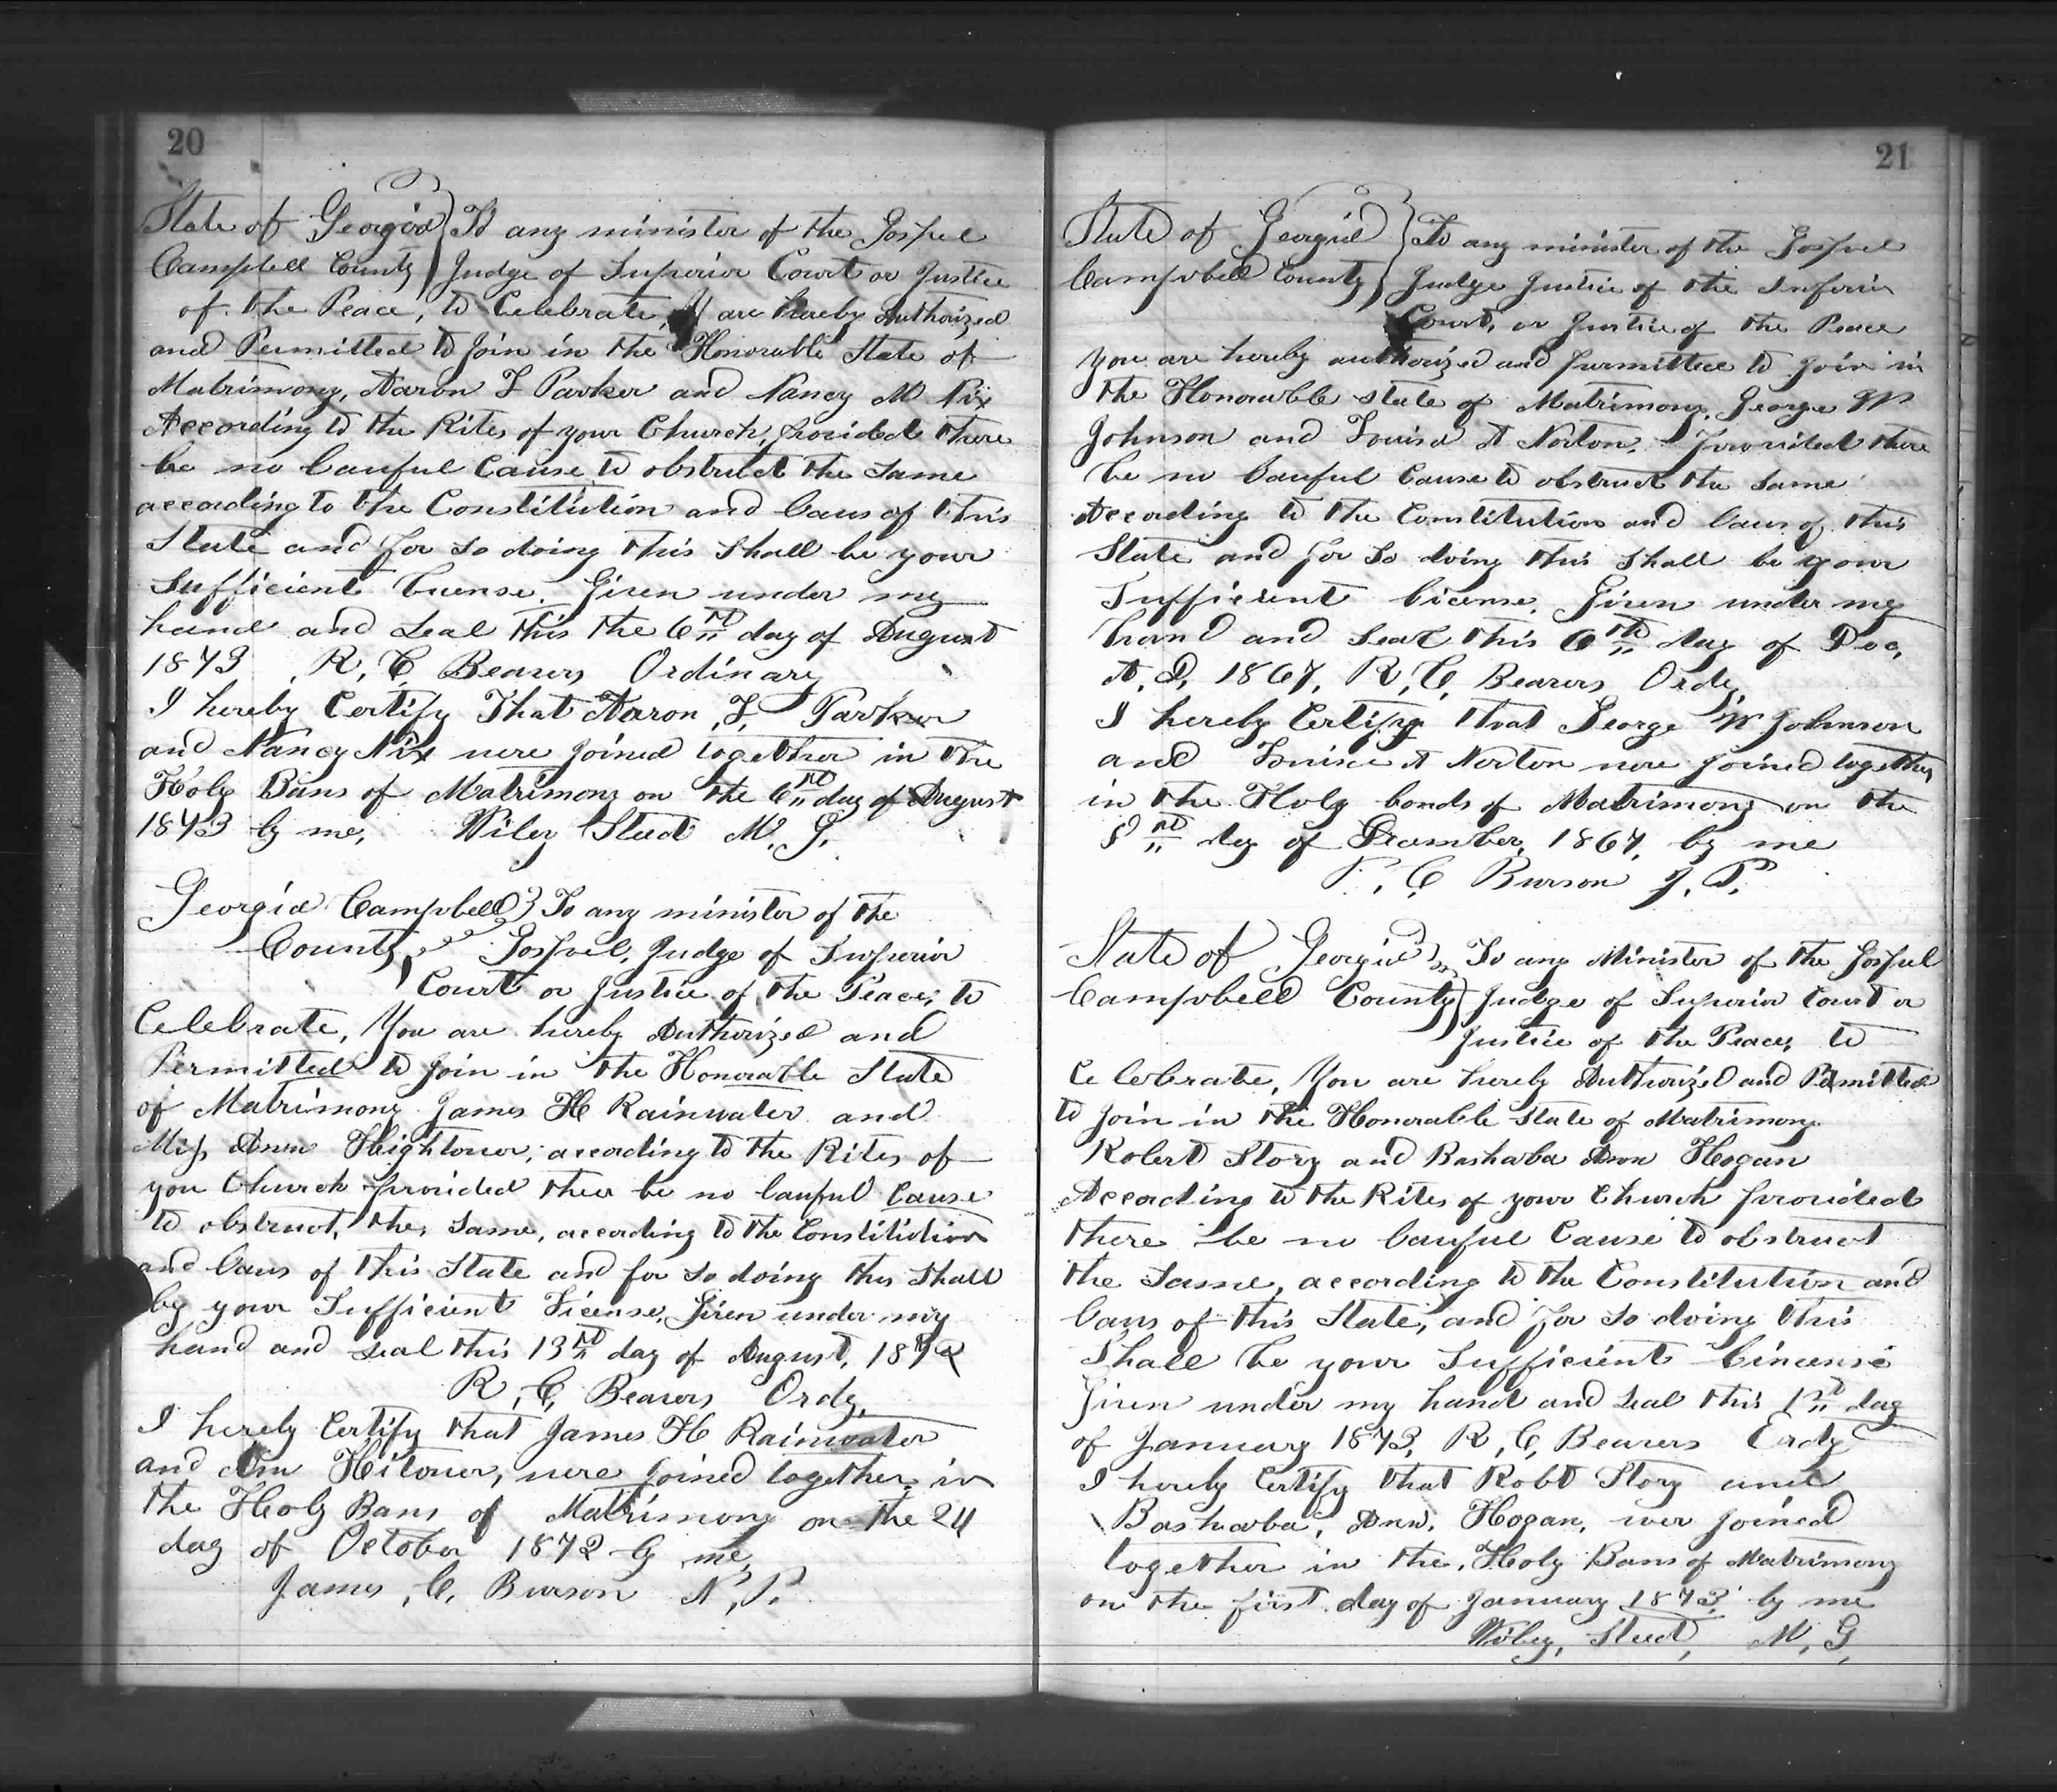 20
State of Georgia } To any minister of the Gospel
Campbell County } Judge of Superior Court or Justice
of the Peace, to Celebrate, are hereby Authorized
and Permitted to join in the Honorable State of
Matrimony, Aaron F Parker and Nancy M Nix
According to the Rites of your Church, provided there
be no lawful Cause to obstruct the Same
according to the Constitution and laws of this
State and for so doing this Shall be your
Sufficient license. Given under my
hand and seal this the 6th day of August
1873 R, C, Beavers Ordinary
I hereby Certify That Aaron, F, Parker
and Nancy Nix were joined together in the
Holy Bans of Matrimony on the 6th day of August
1873 by me, Wiley Steed M, G,
Georgia Campbell } To any minister of the
County Gospel, Judge of Superior
Court or Justice of the Peace, to
Celebrate, You are hereby Authorized and
Permitted to join in the Honorable State
of Matrimony James H Rainwater and
Miss Ann Hightower, according to the Rites of
you Church provided ther be no lawful Cause
to obstruct, the, Same, according to the Constitution
and laws of this State and for so doing this Shall
by your Sufficient License, Given under my
hand and seal this 13th day of August, 1872
R, C, Beavers Ordy,
I hereby Certify that James H Rainwater
and Ann Hitower, were joined together in
the Holy Bans of Matrimony on the 24
day of October 1872 by me,
James, C, Burson N, P,
21
State of Georgia } To any minister of the Gospel
Campbell County } Judge Justice of the Inferior
Court, or Justice of the Peace
you are hereby authorized and permitted to join in
the Honorable state of Matrimony, George W
Johnson and Louisa A Norton, Provided there
be no lawful Cause to obstruct the Same
According to the Constitution and laws of this
State and for so doing this shall be your
Sufficient license. Given under my
hand and seal this 6th day of Dec,
A, D, 1867, R, C, Beavers Ordy,
I hereby Certify that George W Johnson
and Louisa A Norton were joined together
in the Holy bonds of Matrimony on the
8th day of December, 1867, by me
C Burson J. P.
State of Georgia } To any Minister of the Gospel
Campbell County } Judge of Superior Court or
Justice of the Peace, to
Celebrate, You are hereby Authorized and Permitted
to join in the Honorable State of Matrimony
Robert Story and Bashaba Ann Hogan
According to the Rites of your Church provided
there be no lawful Cause to obstruct
the Same, according to the Constitution and
laws of this State, and for so doing this
Shall be your Sufficient Lincense
Given under my hand and seal this 1st day
of January 1873, R, C, Beavers Ordy
I hereby Certify that Robt Story and
Bashaba, Ann, Hogan, wer joined
together in the, Holy Bans of Matrimony
on the first day of January 1873, by me
Wiley, Steed, M, G,